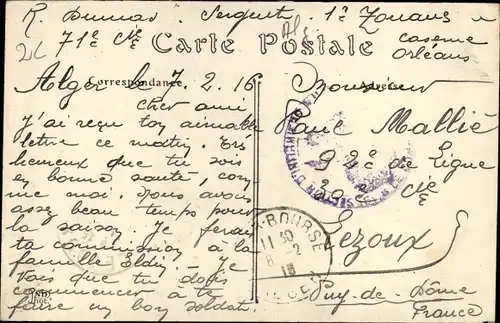 R. Dumas Sergent 1e Zouaves
71e Cie caserne
Orléans
Carte Postale
Correspondance
Alger le 7.2.16
Cher ami
J'ai reçu ton aimable
lettre ce matin. Très
heureux que tu sois
en bonne santé, com
me moi. Nous avons
assez beau temps pour
la saison. Je ferai
ta commission à la
famille Eldin. Je
vois que tu dois
commencer à te
faire un bon soldat.
Monsieur
Paul Mallié
92e de Ligne
29e Cie
Lezoux
Puy-de-Dôme
France
BOURSE
ALGER
ND